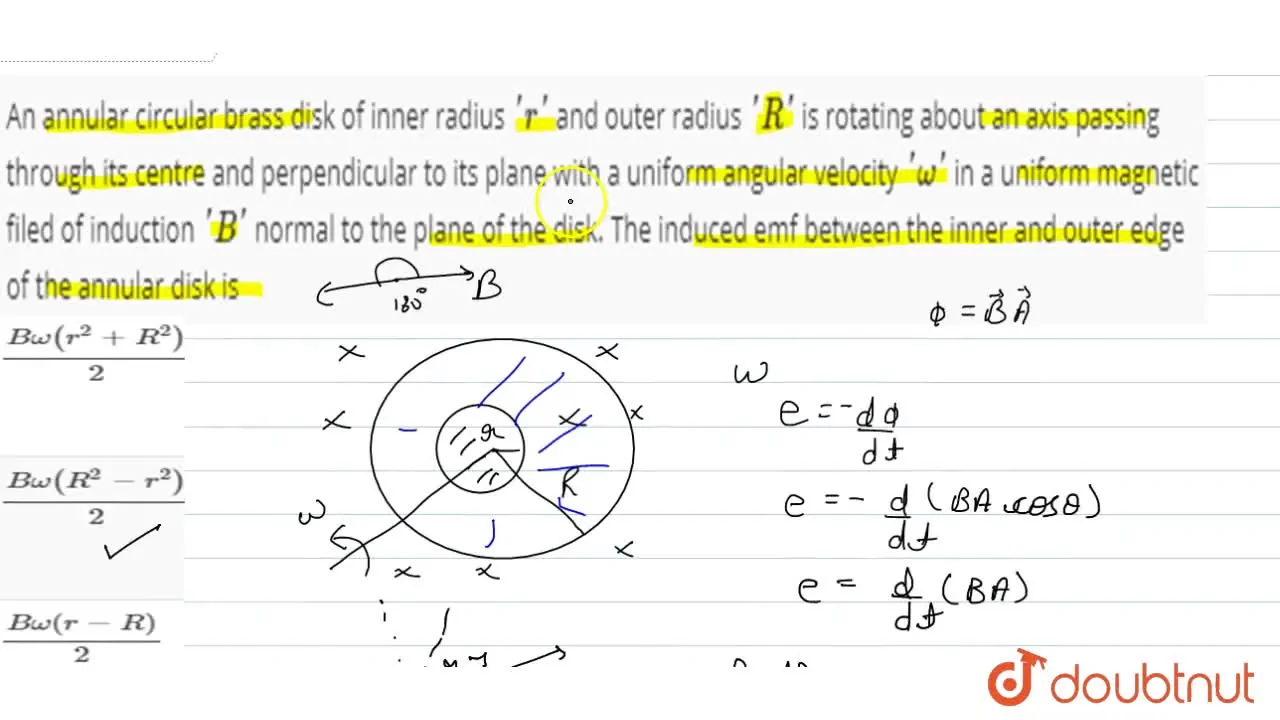 An annular circular brass disk of inner radius 'r' and outer radius 'R' is rotating about an axis passing
through its centre and perpendicular to its plane with a uniform angular velocity 'ω' in a uniform magnetic
filed of induction 'B' normal to the plane of the disk. The induced emf between the inner and outer edge
of the annular disk is
B
180°
ϕ = B⃗ A⃗
Bω(r² + R²)
2
x x
ω
x x x
e = - dϕ
dt
r
R
Bω(R² − r²)
2
ω
e = - d (BA cosθ)
dt
x
x x
e = d (BA)
dt
Bω(r − R)
2
doubtnut